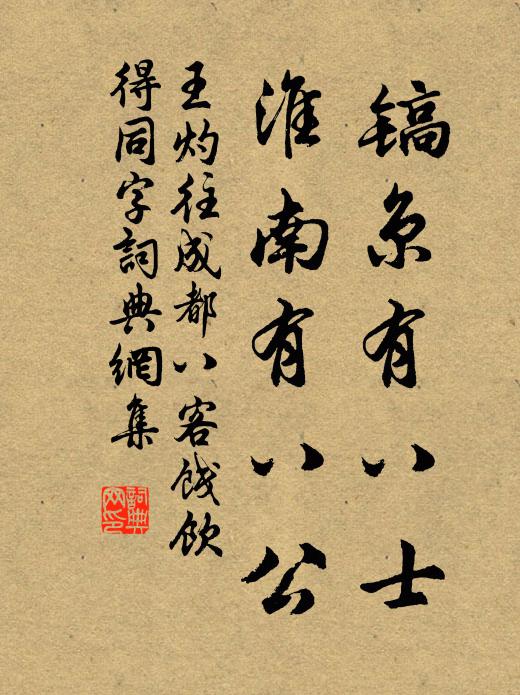 镐京有八士
淮南有八公
王灼往成都八客饯飲
得同字詞典網集
詞典网印